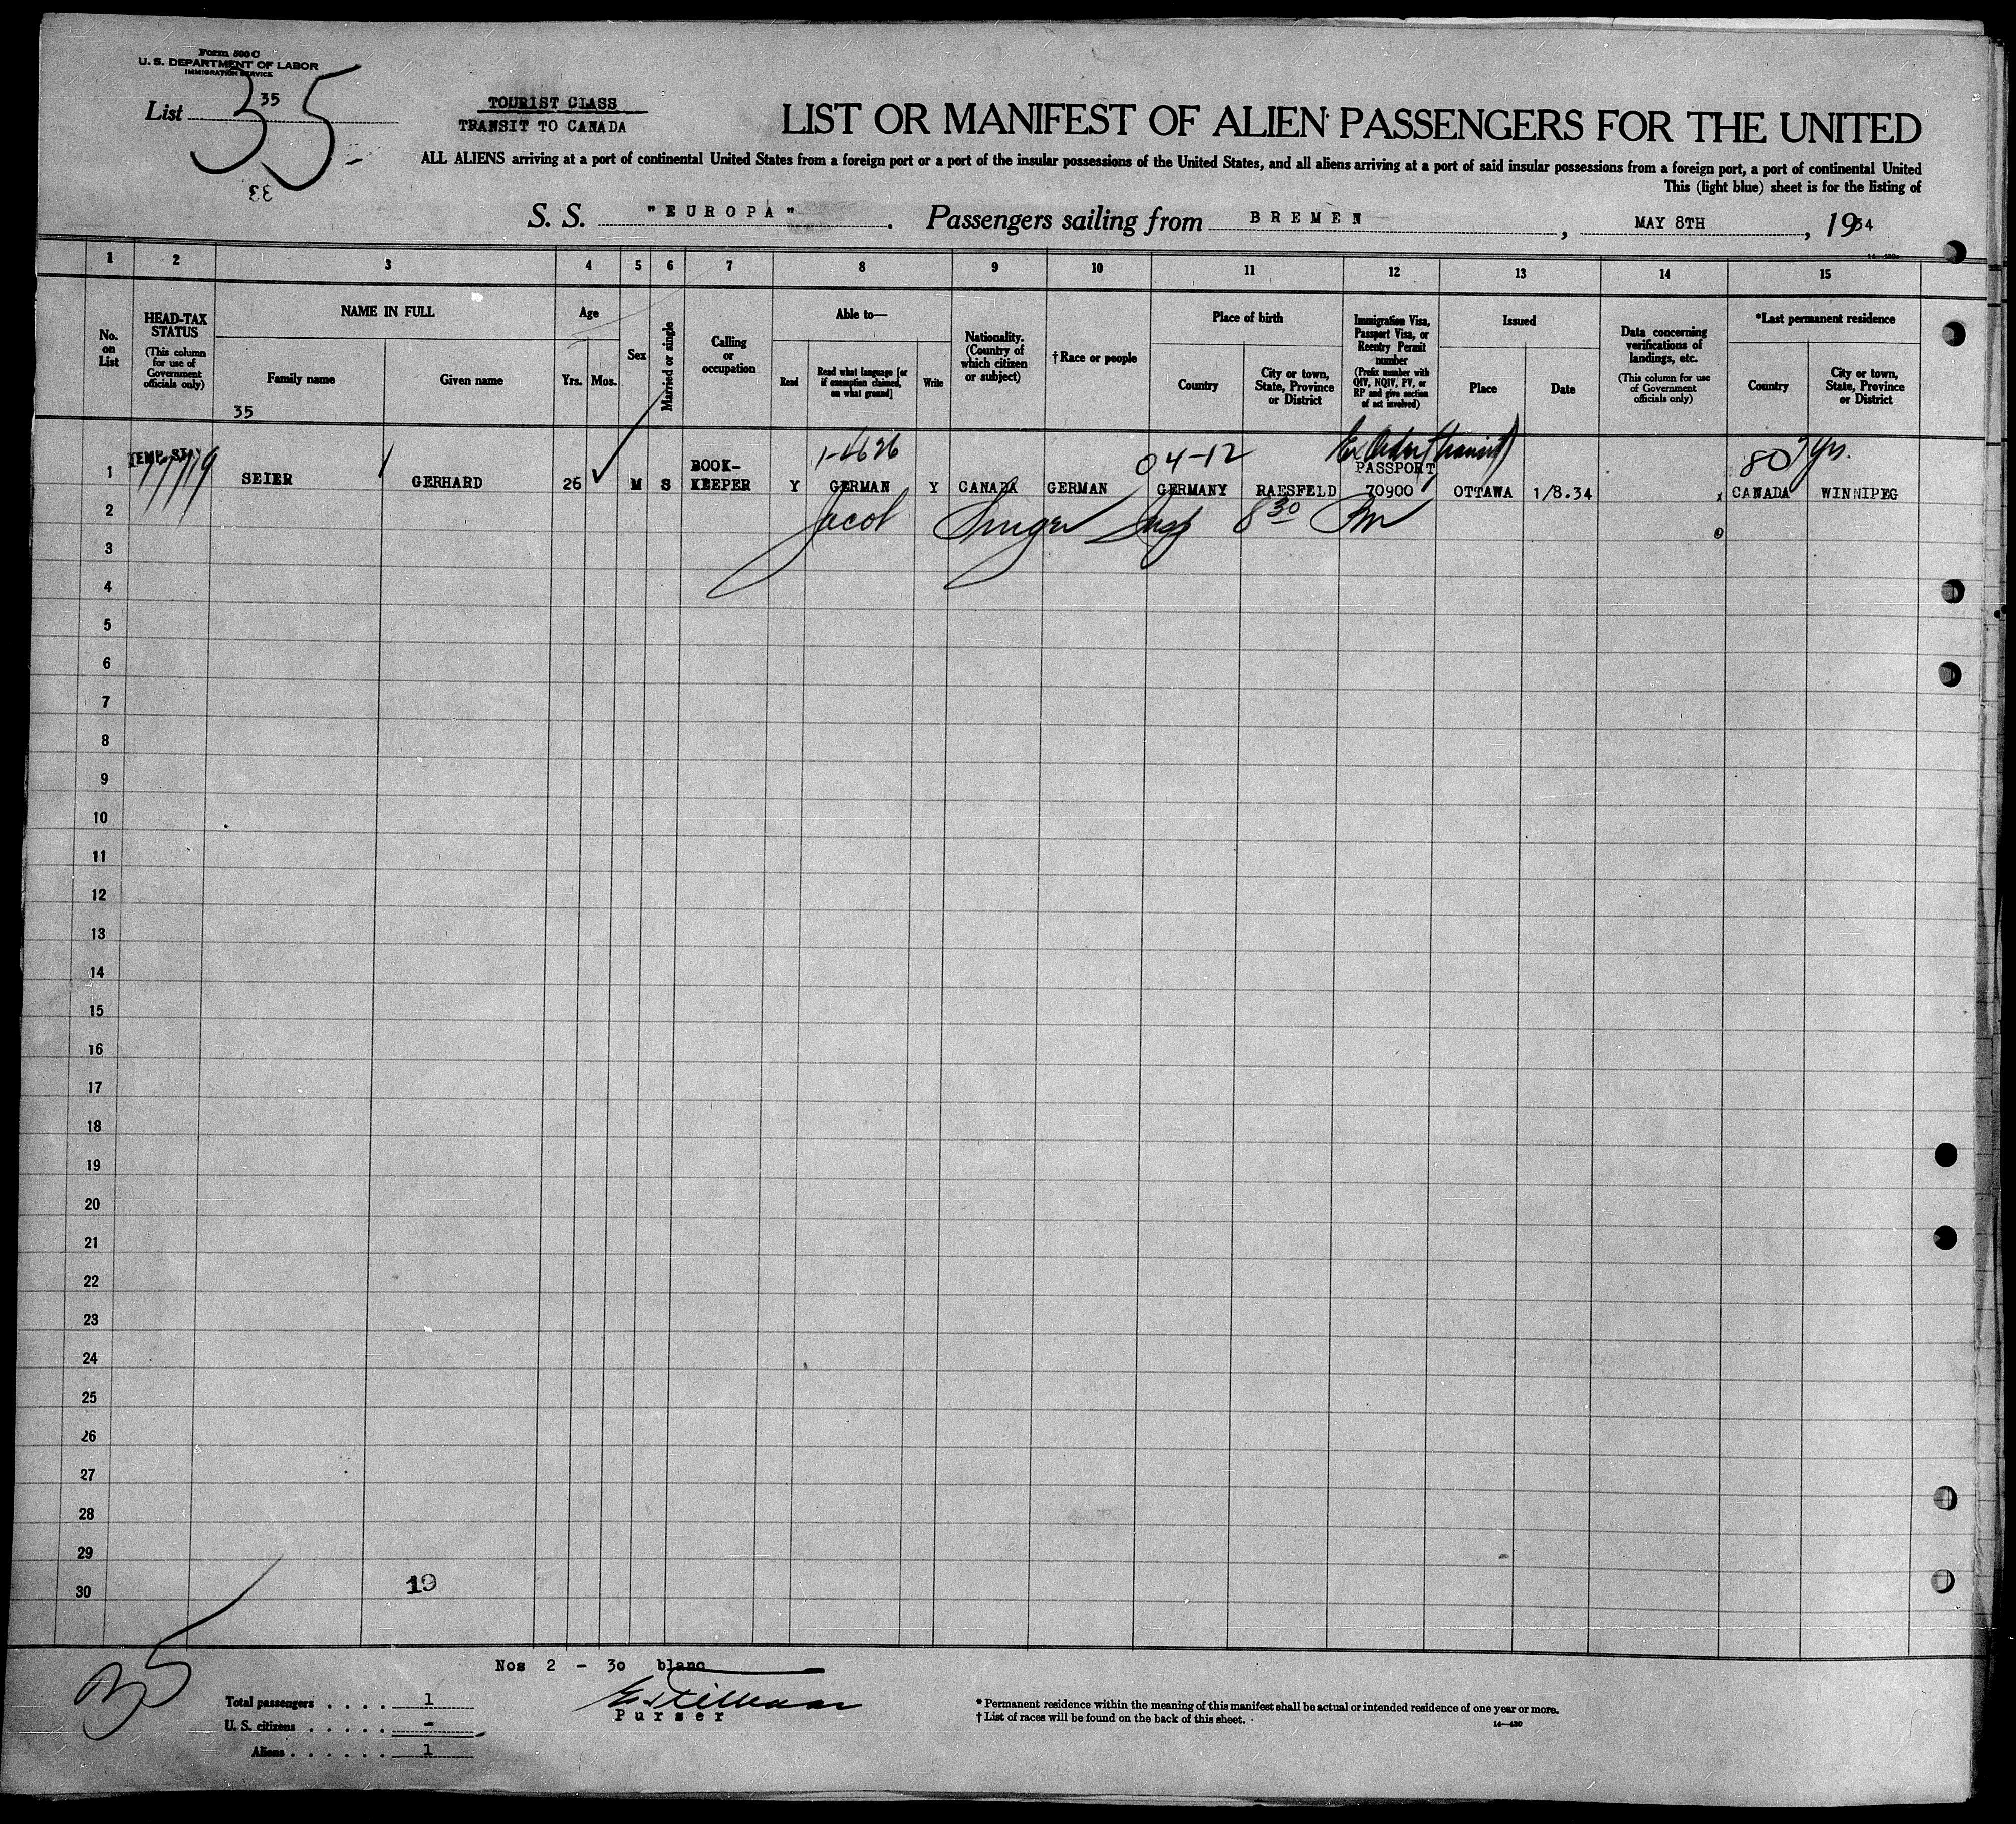 Form 500 C
U. S. DEPARTMENT OF LABOR
IMMIGRATION SERVICE
List 35
35
33
TOURIST CLASS
TRANSIT TO CANADA
LIST OR MANIFEST OF ALIEN PASSENGERS FOR THE UNITED
ALL ALIENS arriving at a port of continental United States from a foreign port or a port of the insular possessions of the United States, and all aliens arriving at a port of said insular possessions from a foreign port, a port of continental United
This (light blue) sheet is for the listing of
S. S. "EUROPA". Passengers sailing from BREMEN, MAY 8TH, 1934
1 2 3 4 5 6 7 8 9 10 11 12 13 14 15
No. on List
HEAD-TAX STATUS
(This column for use of Government officials only)
NAME IN FULL
Family name
Given name
35
Age
Yrs. Mos.
Sex
Married or single
Calling or occupation
Able to—
Read
Read what language [or if exemption claimed, on what ground]
Write
Nationality. (Country of which citizen or subject)
†Race or people
Place of birth
Country
City or town, State, Province or District
Immigration Visa, Passport Visa, or Reentry Permit number
(Prefix number with QIV, NQIV, PV, or RP and give section of act involved)
Issued
Place
Date
Data concerning verifications of landings, etc.
(This column for use of Government officials only)
*Last permanent residence
Country
City or town, State, Province or District
04-12
(transit)
80 yrs.
1 TEMP. STAY SEIER GERHARD 26 M S BOOK-KEEPER Y GERMAN Y CANADA GERMAN GERMANY RAESFELD PASSPORT 70900 OTTAWA 1/8.34 CANADA WINNIPEG
2 Jacob Insp 8 30 Pm
3
4
5
6
7
8
9
10
11
12
13
14
15
16
17
18
19
20
21
22
23
24
25
26
27
28
29
30
19
35
Nos 2 - 30 blanc
Purser
Total passengers . . . . 1
U. S. citizens . . . . . -
Aliens . . . . . . 1
* Permanent residence within the meaning of this manifest shall be actual or intended residence of one year or more.
† List of races will be found on the back of this sheet.
14—430